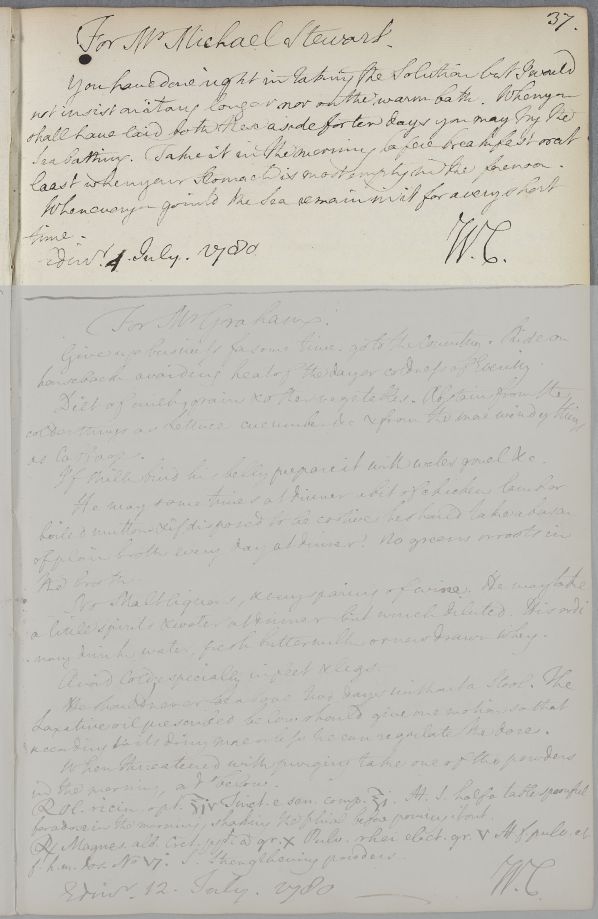 37.
For Mr Michael Stewart.
You have done right in taking the Solution but I would
not insist on it any longer nor on the warm bath. When you
shall have laid both these aside for ten days you may try the
Sea bathing. Take it in the morning before breakfast or at
least when your Stomach is most empty in the forenoon.
Whenever you go into the Sea remain in it for a very short
time.
Edinr. 4 July. 1780
W.C.
For Mr Graham.
Give up business for some time. go to the Country. Ride on
horseback avoiding heat of the day or coldness of Evening.
Diet of milk grain & other vegetables. Abstain from the
colder things as Lettuce cucumber &c & from the more windy things
as
If Milk bind his belly prepare it with water gruel &c.
He may sometimes at dinner a bit of chicken lamb or
boiled mutton & if disposed to be costive he should take a bason
of plain broth every day at dinner. No greens or roots in
the broth.
No Malt liquors, & very sparing of wine. He may take
a little spirits & water at dinner but much diluted. His ordi
nary drink water, fresh buttermilk or new drawn whey.
Avoid Cold especially in feet & legs.
He should never be above two days without a Stool. The
Laxative oil prescribed below should give one motion so that
according to its doing more or less he can regulate the dose.
When threatened with purging take one of the powders
in the morning, as below.
℞ Ol. ricin. opt. ℥iv Tinct. e sen. comp. ℥i. M. S. half a table spoonful
for a dose in the morning, shaking the phial before pouring it out.
℞ Magnes. alb. gr. X Pulv. rhei elect. gr. V M. f. pulv. et
f. h. m. dos. No VI. S. Strengthening powders.
Edinr. 12. July. 1780
W.C.